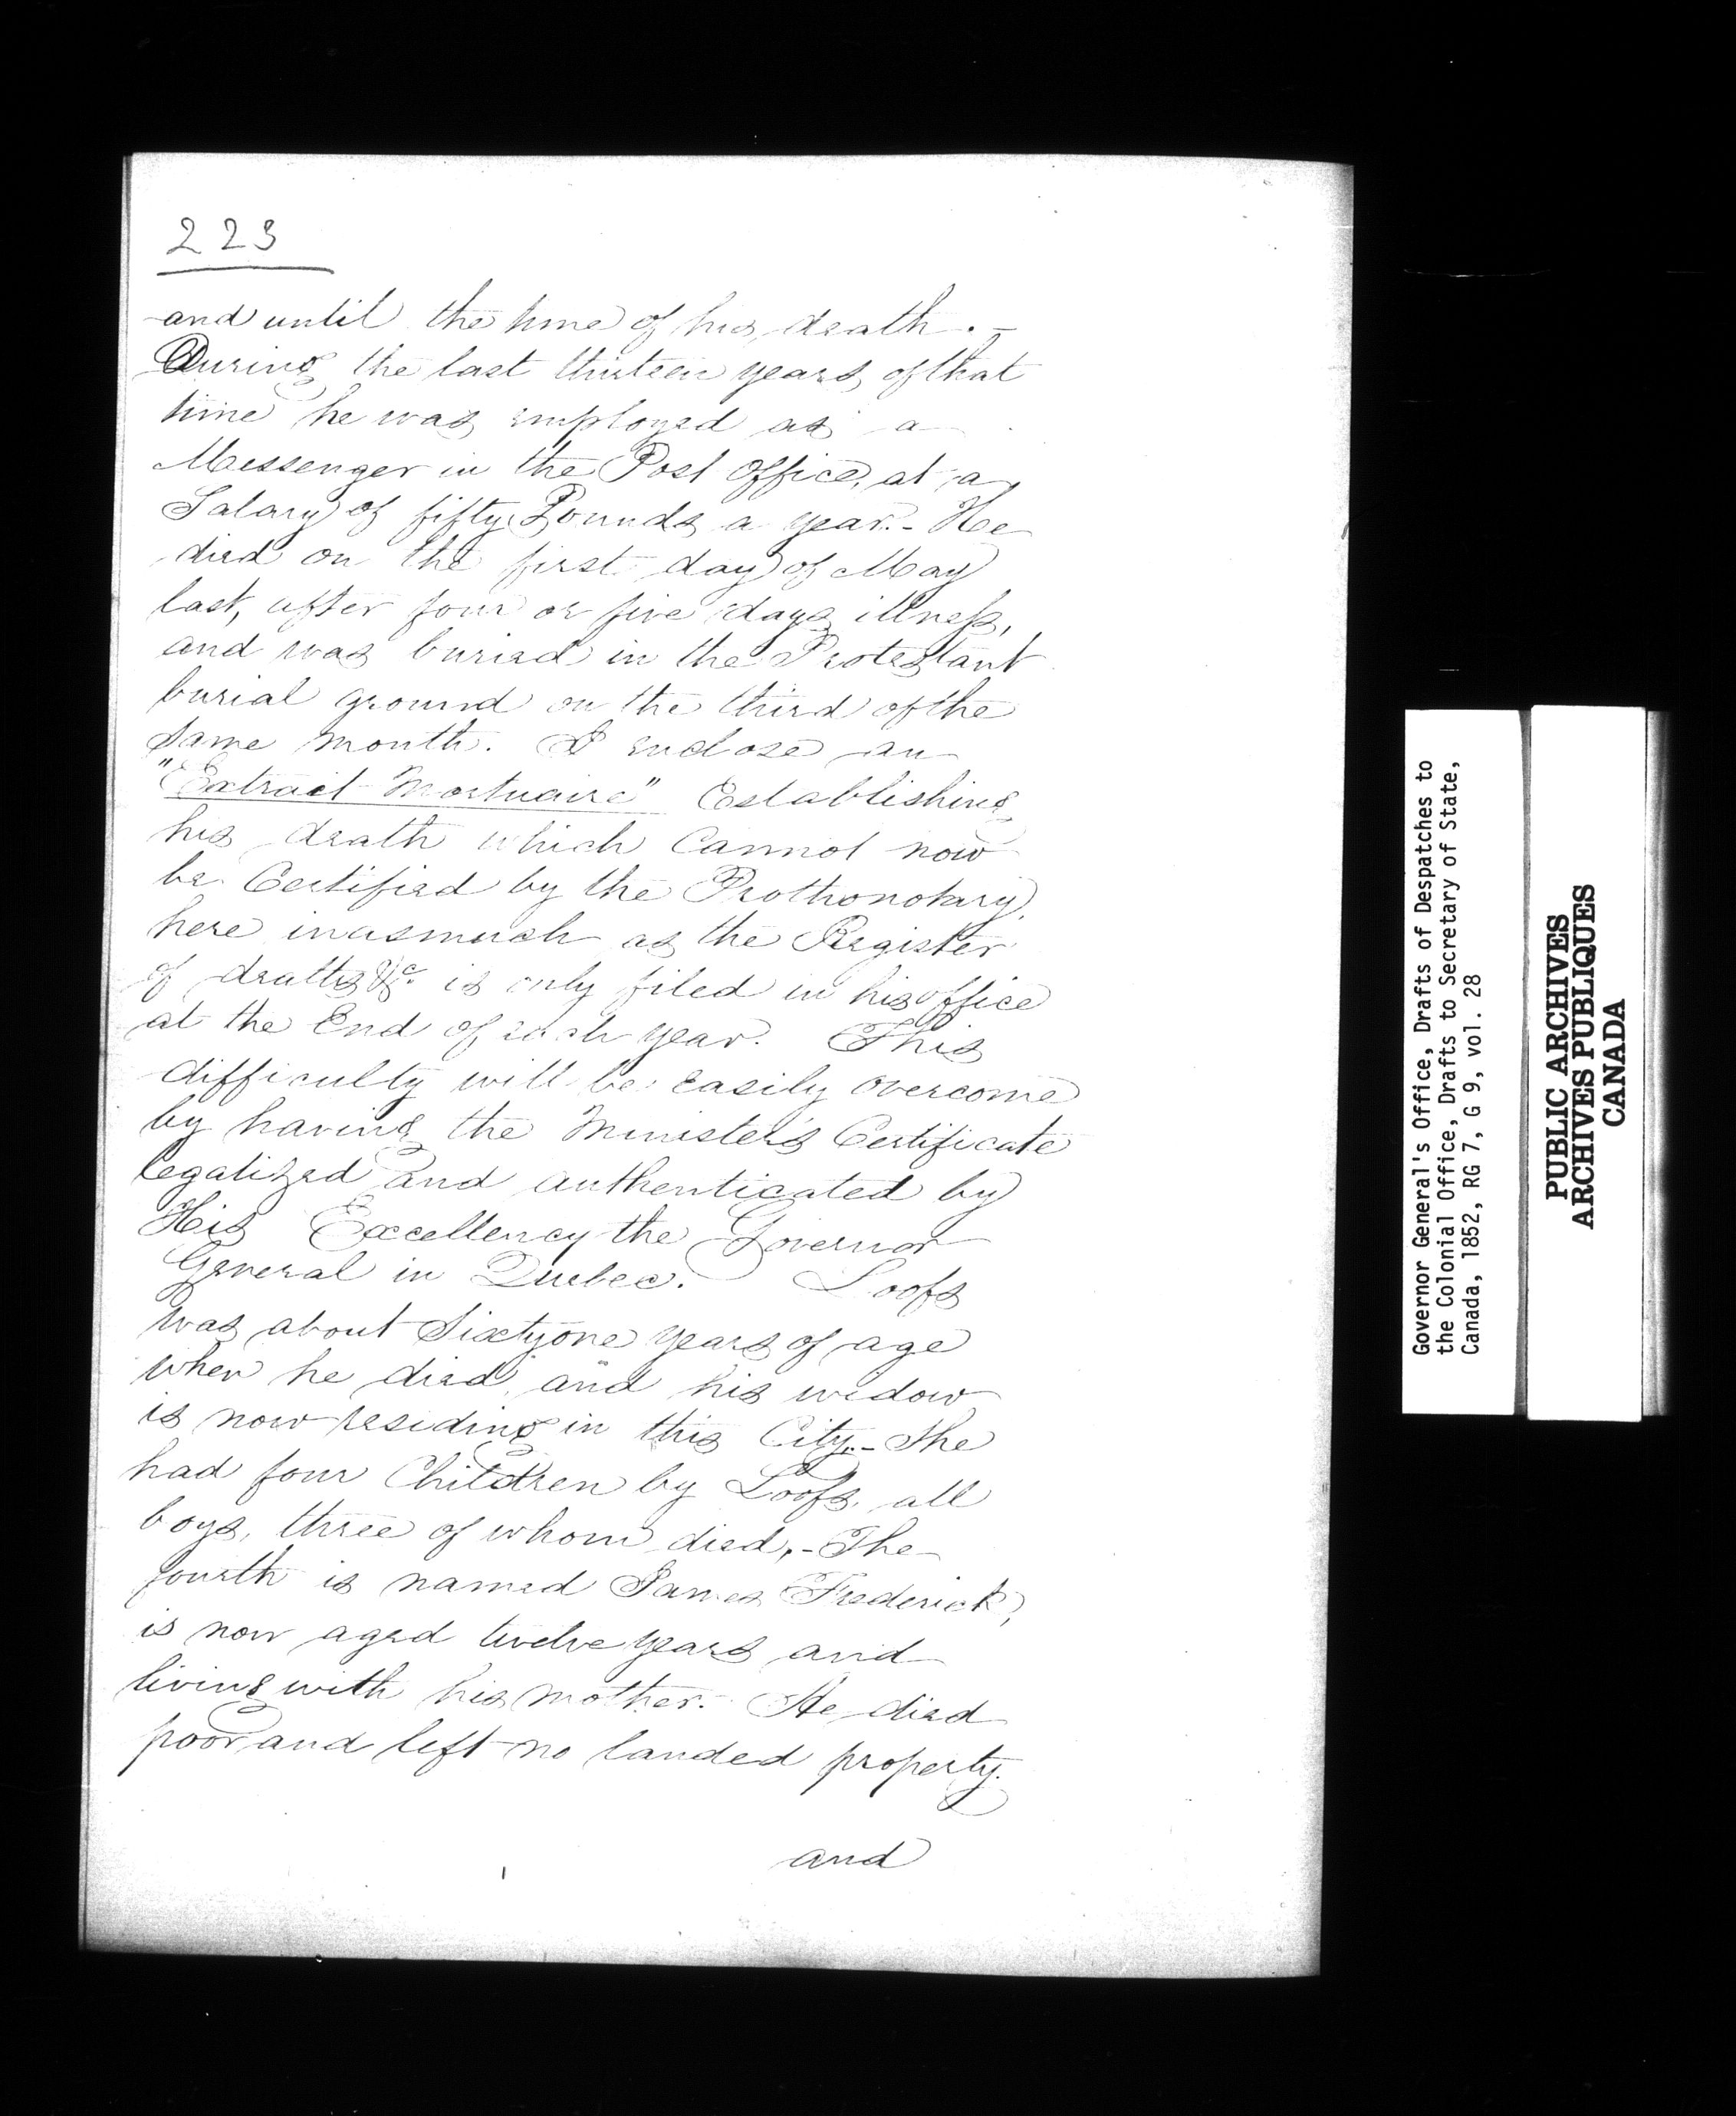 223
and until the time of his death. -
During the last thirteen years of that
time he was employed as a
Messenger in the Post Office, at a
Salary of fifty Pounds a year. - He
died on the first day of May
last, after four or five days illness,
and was buried in the Protestant
burial ground on the third of the
same month. I enclose an
"Extrait Mortuaire" Establishing
his death which Cannot now
be Certified by the Prothonotary
here inasmuch as the Register
of deaths &c. is only filed in his office
at the End of each year. This
difficulty will be easily overcome
by having the Minister's Certificate
legalized and authenticated by
His Excellency the Governor
General in Quebec. Loofs
was about Sixtyone years of age
when he died and his widow
is now residing in this City. - She
had four Children by Loofs, all
boys, three of whom died, - The
fourth is named James Frederick,
is now aged twelve years and
living with his mother. He died
poor and left no landed property.
and
Governor General's Office, Drafts of Despatches to
the Colonial Office, Drafts to Secretary of State,
Canada, 1852, RG 7, G 9, vol. 28
PUBLIC ARCHIVES
ARCHIVES PUBLIQUES
CANADA